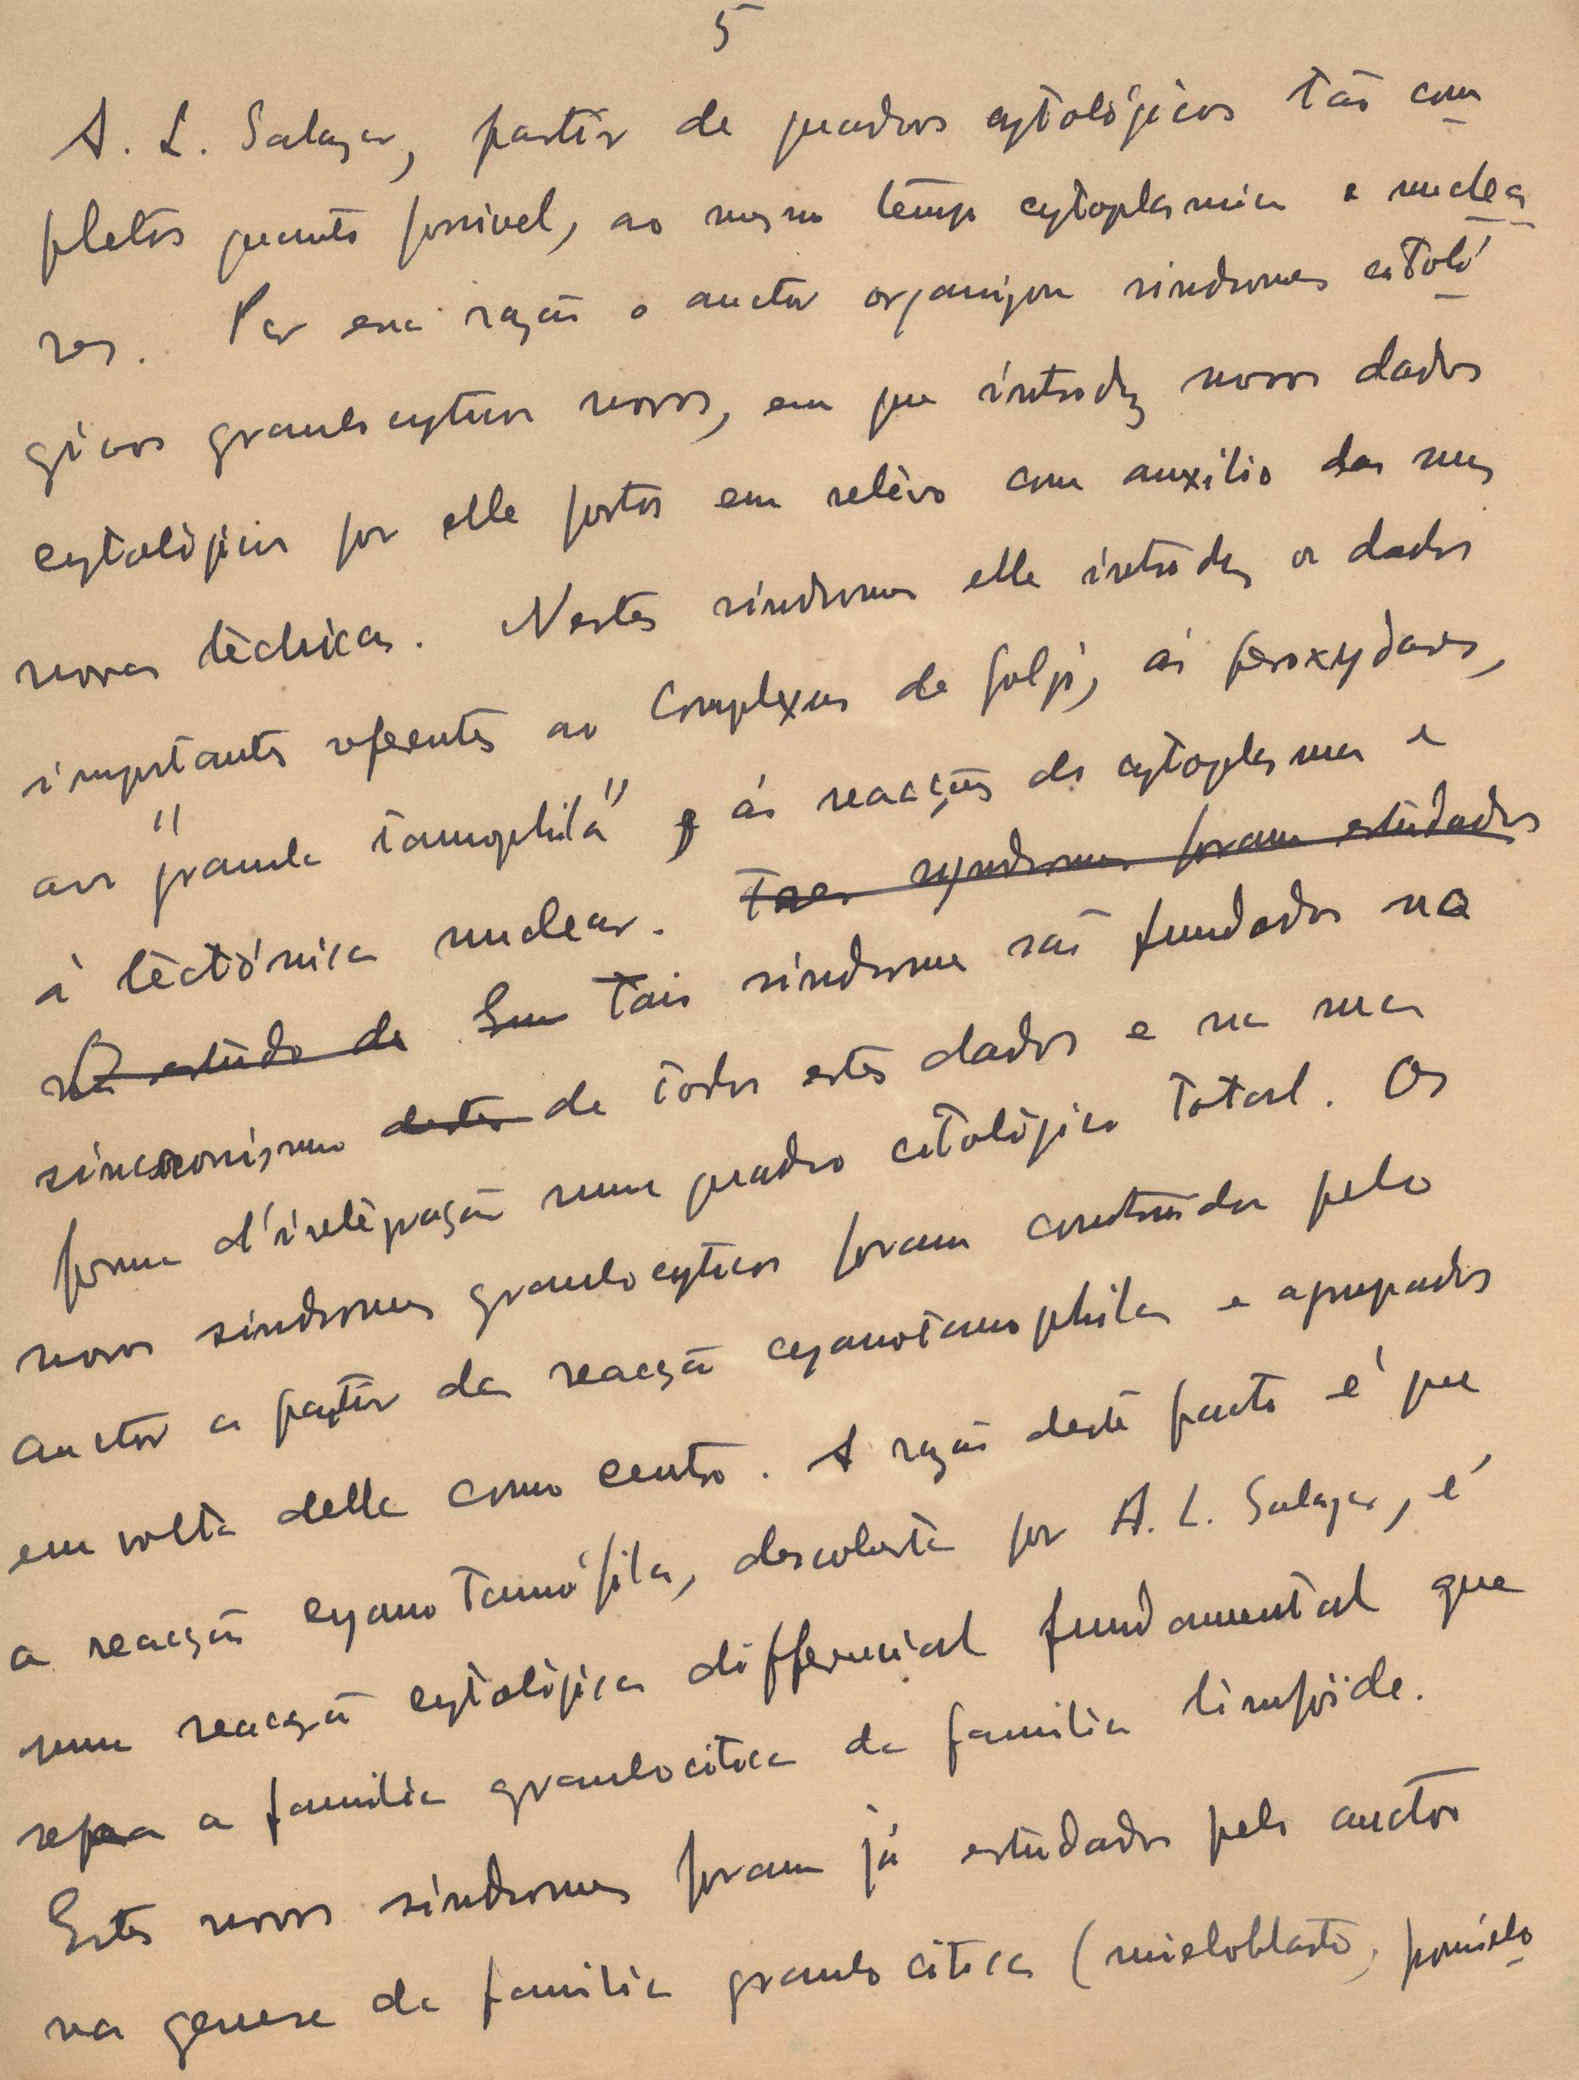 5
A. L. Salazar, partir de quadros cytológicos tão com
pletos quanto possivel, ao mesmo tempo cytoplasmica e nuclea
res. Por essa razão o auctor organizou sindromes citoló
gicos granulocyticos novos, em que introduz novos dados
cytológicos por elle postos em relêvo com auxilio das suas
novas téchicas. Nestes sindromes elle introduz os dados
importantes referentes ao Complexus de Golgi, ás peroxydases,
aos "granula tanophila" e ás reacções do cytoplasma e
á tectónica nuclear. Taes syndromes foram estudados
No estudo de Em Tais sindrome são fundados no
sincronismo destes de todos estes dados e na sua
forma d'integração num quadro citológico total. Os
novos sindromes granulocyticos foram construidos pelo
auctor a partir da reacção cyanotanophila e agrupados
em volta della como centro. A razão deste facto é que
a reacção cyanotannófila, descoberta por A. L. Salazar, é
uma reacção cytológica differencial fundamental que
separa a familia granulocitica da familia linfóide.
Estes novos sindromes foram já estudados pelo auctor
na genese da familia granulocitica (mieloblasto, promielo